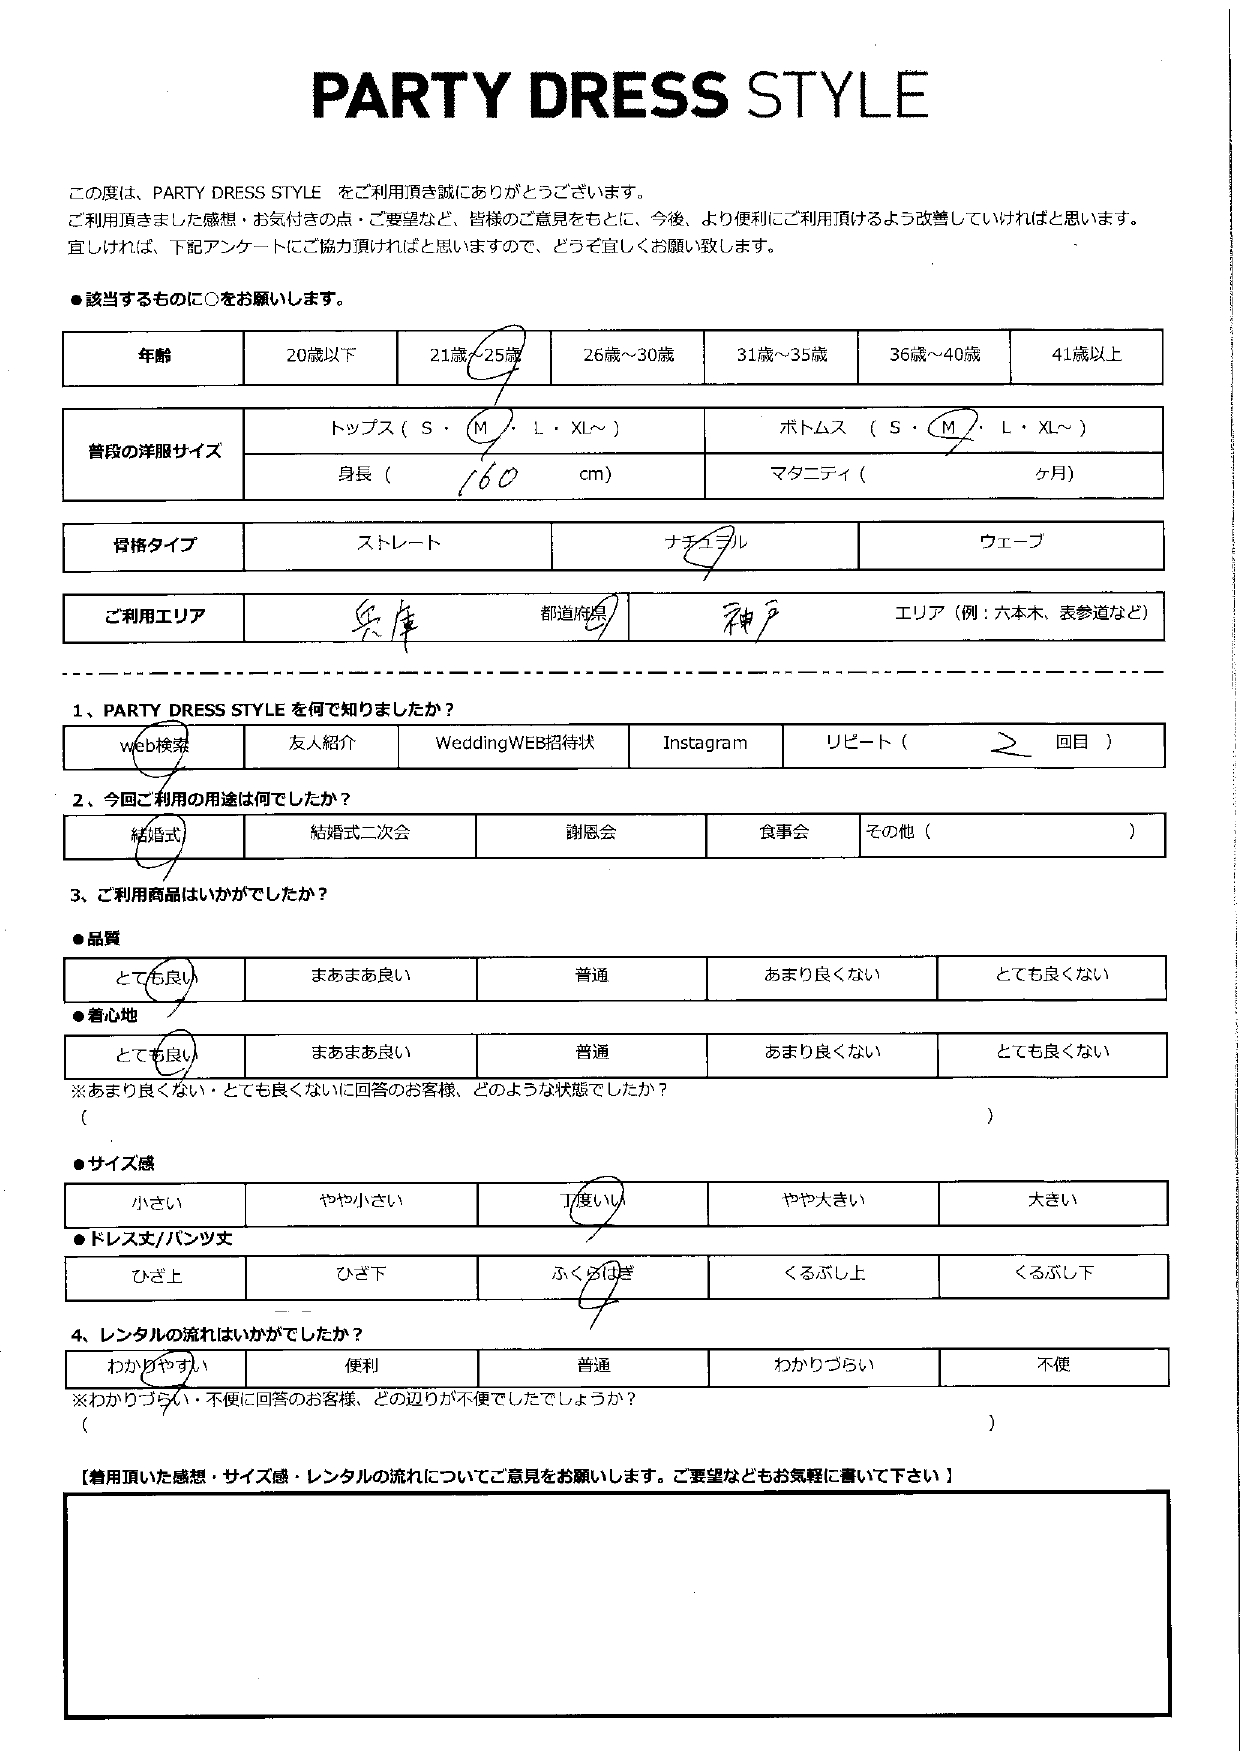 PARTY DRESS STYLE
この度は、PARTY DRESS STYLE をご利用頂き誠にありがとうございます。
ご利用頂きました感想・お気付きの点・ご要望など、皆様のご意見をもとに、今後、より便利にご利用頂けるよう改善していければと思います。
宜しければ、下記アンケートにご協力頂ければと思いますので、どうぞ宜しくお願い致します。
●該当するものに○をお願いします。
年齢 20歳以下 21歳～25歳 26歳～30歳 31歳～35歳 36歳～40歳 41歳以上
普段の洋服サイズ トップス ( S ・ M ・ L ・ XL～ ) ボトムス ( S ・ M ・ L ・ XL～ )
身長 ( 160 cm) マタニティ ( ヶ月)
骨格タイプ ストレート ナチュラル ウェーブ
ご利用エリア 兵庫 都道府県 神戸 エリア（例：六本木、表参道など）
1、PARTY DRESS STYLE を何で知りましたか？
web検索 友人紹介 WeddingWEB招待状 Instagram リピート ( 2 回目 )
2、今回ご利用の用途は何でしたか？
結婚式 結婚式二次会 謝恩会 食事会 その他 ( )
3、ご利用商品はいかがでしたか？
●品質
とても良い まあまあ良い 普通 あまり良くない とても良くない
●着心地
とても良い まあまあ良い 普通 あまり良くない とても良くない
※あまり良くない・とても良くないに回答のお客様、どのような状態でしたか？
( )
●サイズ感
小さい やや小さい 丁度いい やや大きい 大きい
●ドレス丈/パンツ丈
ひざ上 ひざ下 ふくらはぎ くるぶし上 くるぶし下
4、レンタルの流れはいかがでしたか？
わかりやすい 便利 普通 わかりづらい 不便
※わかりづらい・不便に回答のお客様、どの辺りが不便でしたでしょうか？
( )
【着用頂いた感想・サイズ感・レンタルの流れについてご意見をお願いします。ご要望などもお気軽に書いて下さい 】